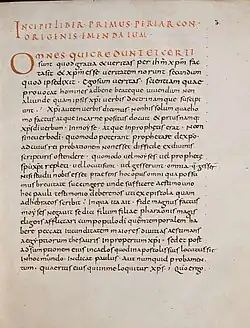 INCIPIT LIBER PRIMUS PERIARCON
ORIGENIS IMENDATUM
OMNES QUI CREDUNT ET CERTI
sunt quod gratia et veritas per ihm xpm fac
ta sit & xpm esse veritatem norunt secundum
quod ipse dixit Ego sum veritas. scientiam quae
provocat homines ad bene beateque vivendum non
aliunde quam ipsis xpi verbis doctrinamque suscipi
unt. Xpi autem verba dicimus non his solum quae ho
mo factus atque in carne positus docuit et prius namque
xps di verbum. In moyse atque in prophetis erat. Nam
sine verbo di quomodo poterant prophetare de xpo
ad cuius rei probationem non esset difficile ex divinis
scripturis ostendere. quomodo vel moyses vel prophetae
spu xpi repleti. vel locuti sunt. vel gesserunt omnia quae gesser
nisi studii nobis esset praesens hoc opus omni qua possu
mus brevitate succingere unde sufficere aestimo uno
hoc pauli testimonio debere nos uti ex epistola quam
ad hebraeos scribit. In qua ita ait. fide magnus factus
moyses negavit se dici filium filiae pharaonis magis
eligens afflictari cum populo di quam temporalem ha
bere peccati iucunditatem maiores divitias aestimans
aegyptiorum thesauris inproperium xpi. Sed et post
adsumptionem eius in caelos quod in apostolis suis locutus sit
in hoc modo. Indicat paulus Aut numquid probamen
tum. quaeritis eius qui in me loquitur xps. Qui ergo